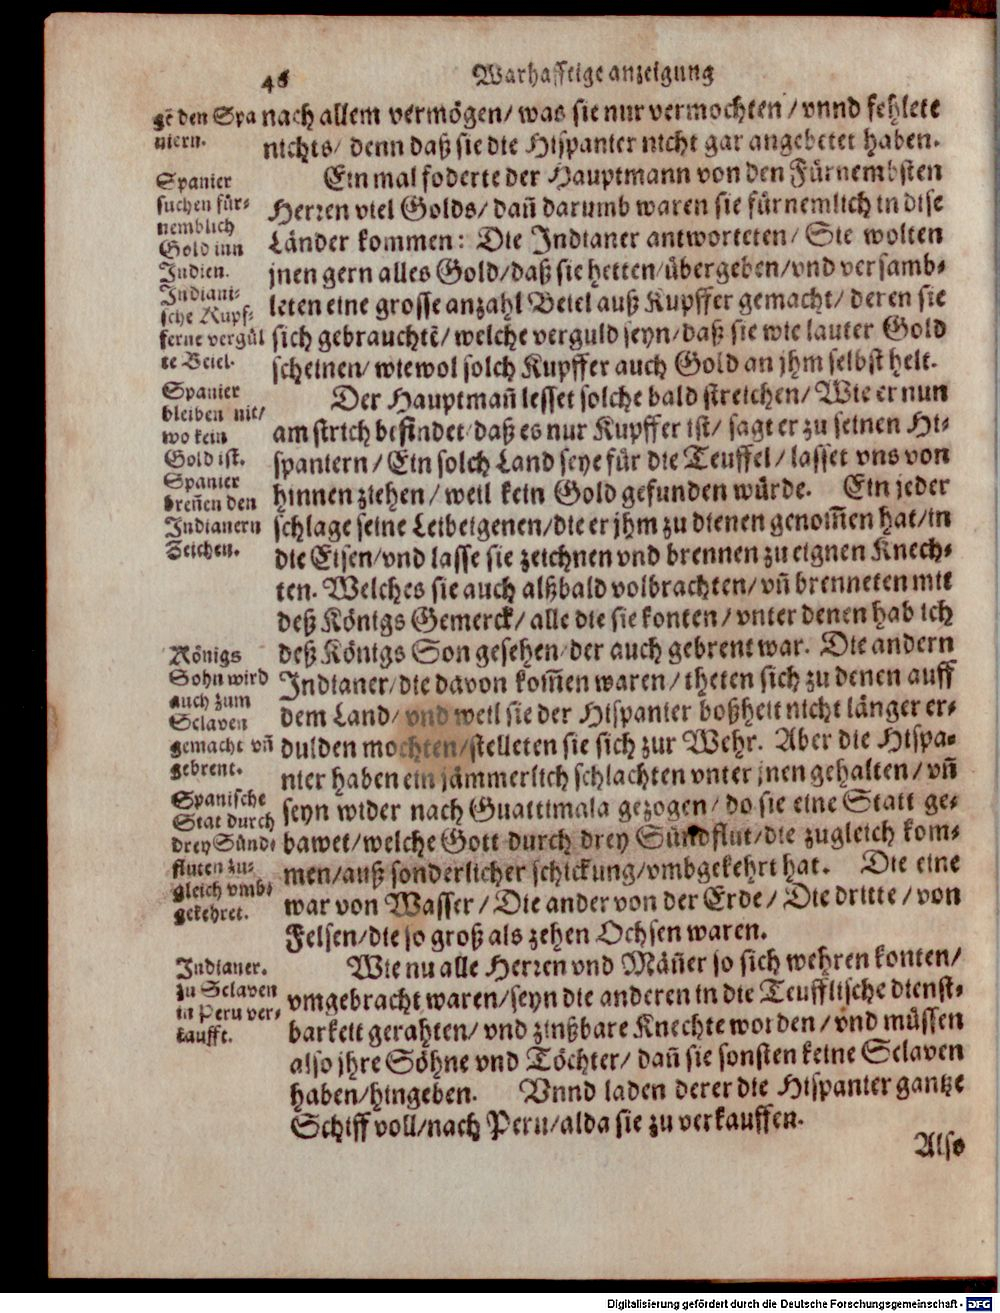 46
Warhafftige anzeigung
gē den Spa
niern.
nach allem vermögen/ was sie nur vermochten / vnnd fehlete
nichts/ denn daß sie die Hispanier nicht gar angebetet haben.
Spanier
suchen für-
nemblich
Gold inn
Indien.
Indiani-
sche Kupf-
ferne vergül
te Beiel.
Ein mal foderte der Hauptmann von den Fürnembsten
Herren viel Golds/ dañ darumb waren sie fürnemlich in dise
Länder kommen: Die Indianer antworteten/ Sie wolten
jnen gern alles Gold/daß sie hetten/übergeben/vnd versamb-
leten eine grosse anzahl Beiel auß Kupffer gemacht/ deren sie
sich gebrauchtē/ welche verguld seyn/daß sie wie lauter Gold
scheinen/ wiewol solch Kupffer auch Gold an jhm selbst helt.
Spanier
bleiben nit/
wo kein
Gold ist.
Spanier
breñen den
Indianern
Zeichen.
Der Hauptmañ lesset solche bald streichen/ Wie er nun
am strich befindet/daß es nur Kupffer ist/ sagt er zu seinen Hi-
spaniern / Ein solch Land seye für die Teuffel / lasset vns von
hinnen ziehen / weil kein Gold gefunden würde. Ein jeder
schlage seine Leibeigenen/die er jhm zu dienen genom̄en hat/in
die Eisen/vnd lasse sie zeichnen vnd brennen zu eignen Knech-
ten. Welches sie auch alßbald volbrachten/ vñ brenneten mit
deß Königs Gemerck/ alle die sie konten / vnter denen hab ich
deß Königs Son gesehen/der auch gebrent war. Die andern
Königs
Sohn wird
auch zum
Sclaven
gemacht vñ
gebrent.
Indianer/die davon kom̄en waren / theten sich zu denen auff
dem Land/ vnd weil sie der Hispanier boßheit nicht länger er-
dulden mochten/stelleten sie sich zur Wehr. Aber die Hispa-
nier haben ein jämmerlich schlachten vnter jnen gehalten / vñ
Spanische
Stat durch
drey Sünd-
fluten zu-
gleich vmb-
gekehret.
seyn wider nach Guattimala gezogen/ do sie eine Statt ge-
bawet/welche Gott durch drey Sündflut/die zugleich kom-
men/auß sonderlicher schickung/vmbgekehrt hat. Die eine
war von Wasser / Die ander von der Erde/ Die dritte / von
Felsen/die so groß als zehen Ochsen waren.
Indianer.
zu Sclaven
in Peru ver-
kaufft.
Wie nu alle Herren vnd Mäñer so sich wehren konten/
vmgebracht waren/seyn die anderen in die Teufflische dienst-
barkeit gerahten/ vnd zinßbare Knechte worden / vnd müssen
also jhre Söhne vnd Töchter/ dañ sie sonsten keine Sclaven
haben/hingeben. Vnnd laden derer die Hispanier gantze
Schiff voll/nach Peru/alda sie zu verkauffen.
Also
Digitalisierung gefördert durch die Deutsche Forschungsgemeinschaft - DFG